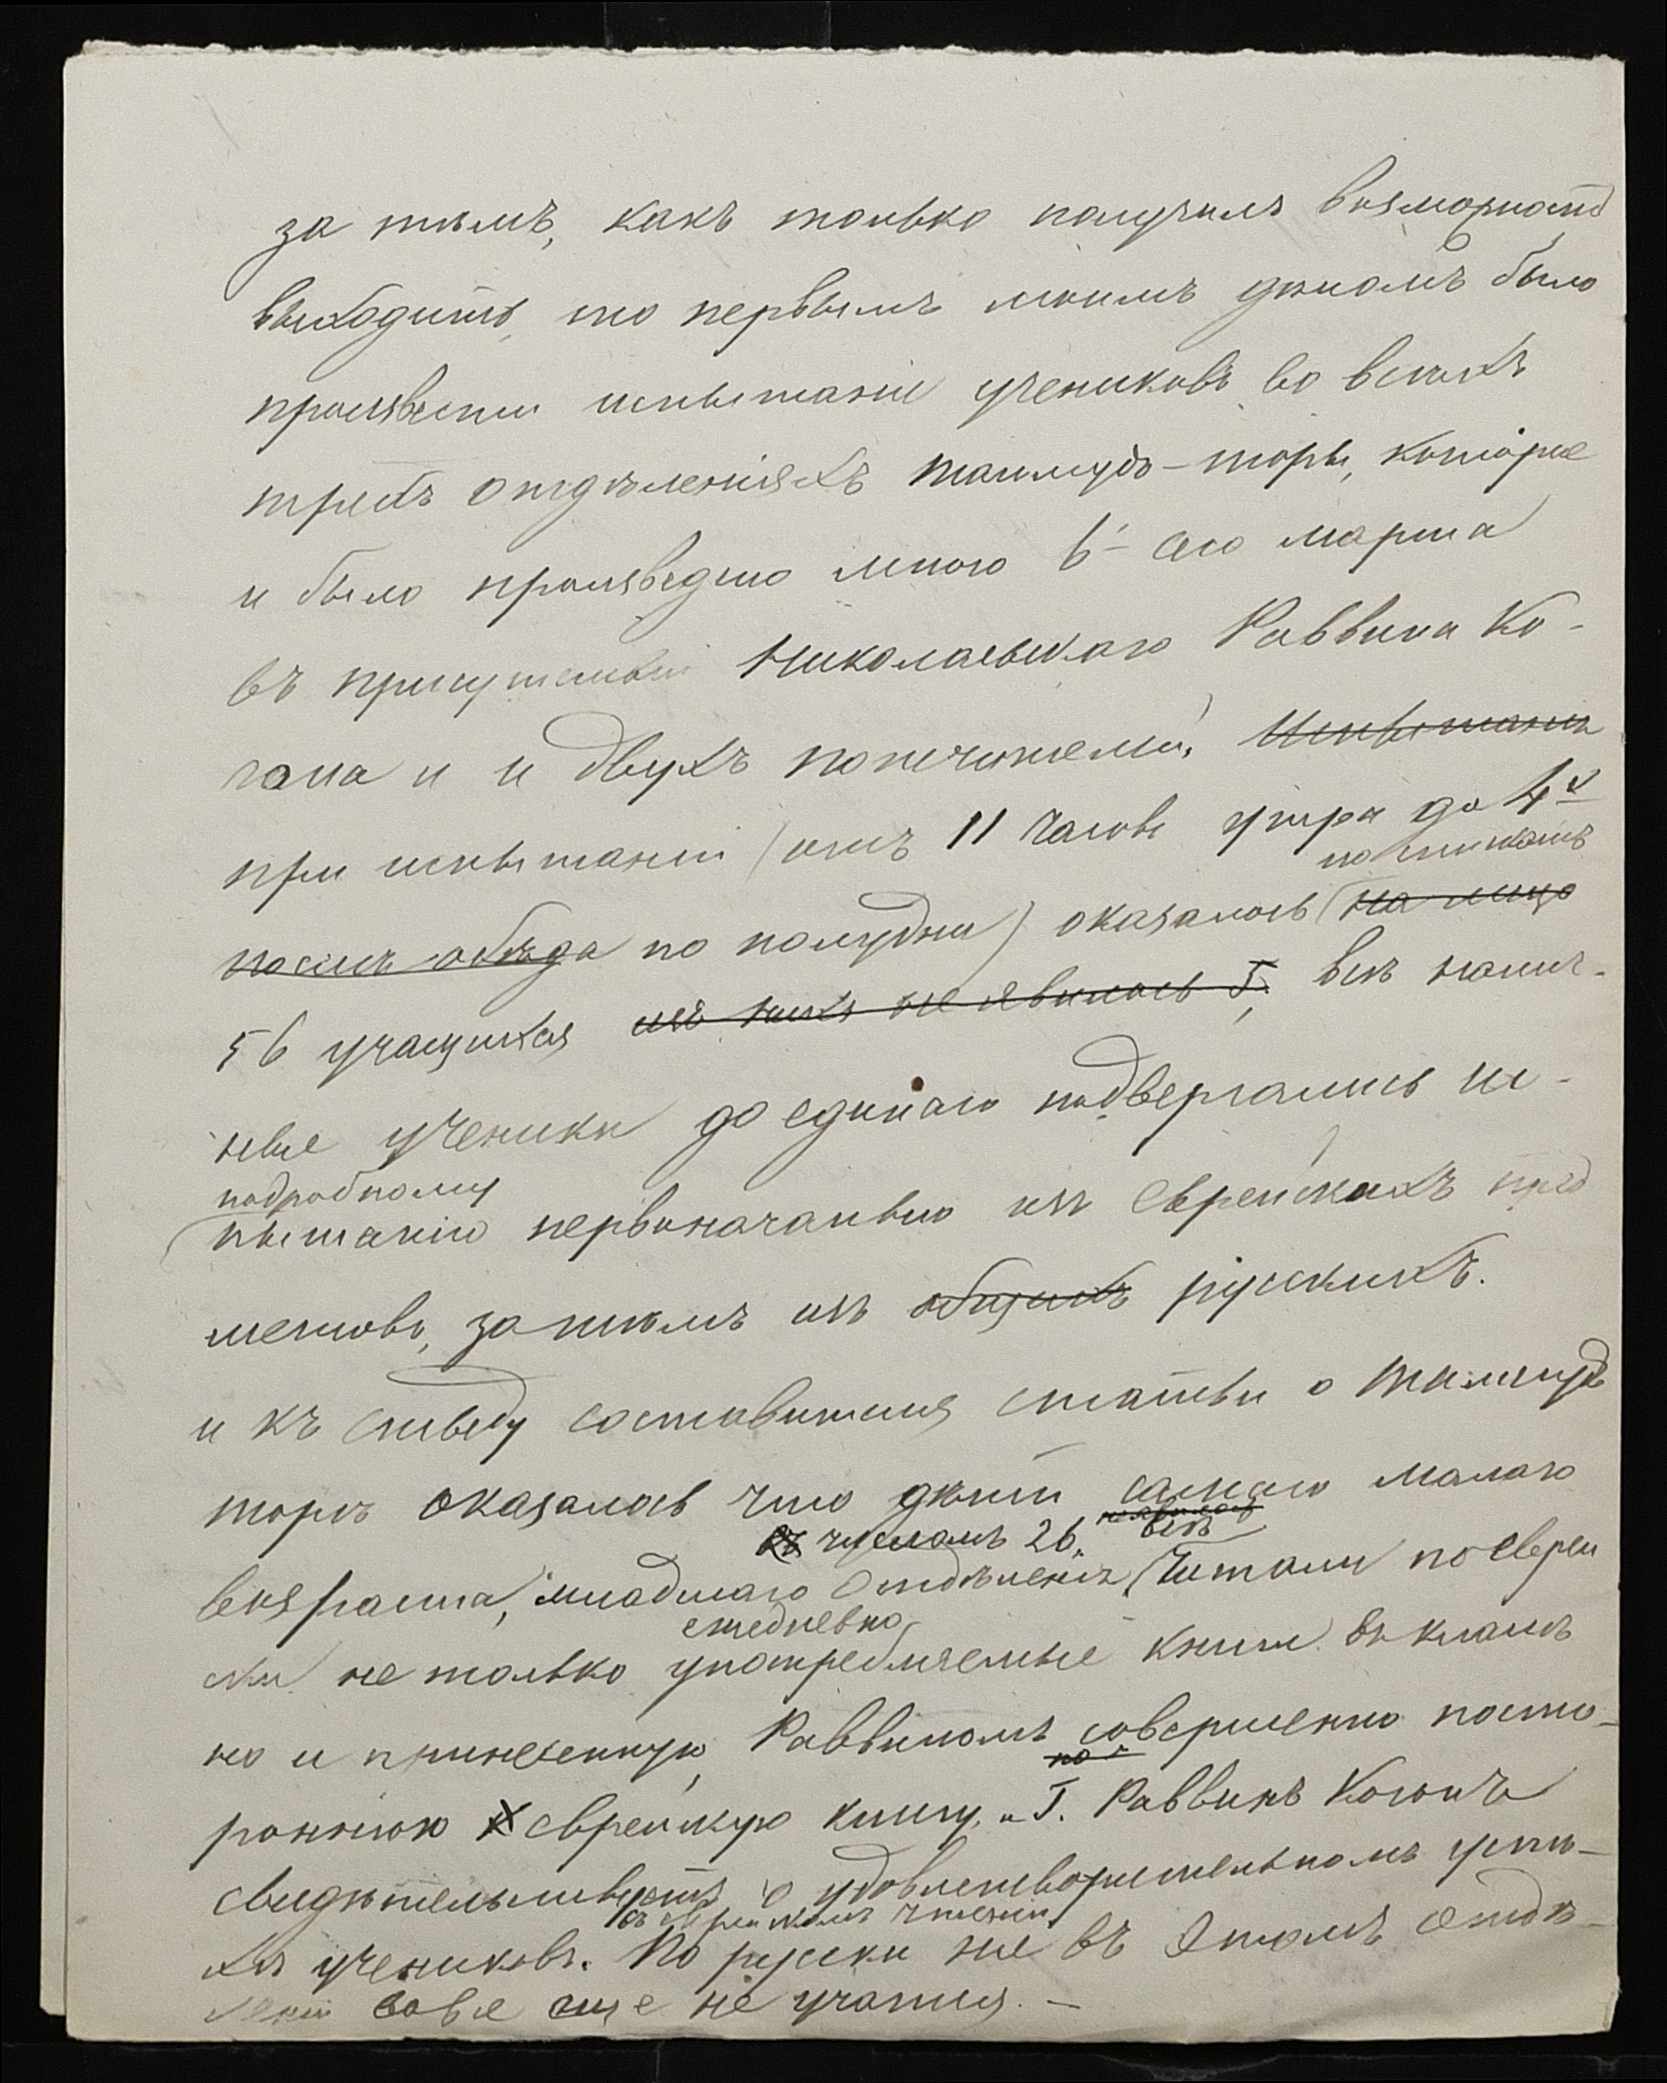 за тѣмъ, какъ только получилъ возможность
выходить, то первымъ моимъ дѣломъ было
произвести испытаніе учениковъ во всѣхъ
трехъ отдѣленіяхъ талмудъ-торы, которое
и было произведено мною 6-аго марта
въ присутствіи Николаевскаго Раввина Ко-
гана и и двухъ попечителей. Испытаніе
при испытаніи (отъ 11 часовъ утра до 4х
по спискамъ
послѣ обѣда по полудни) оказалось на лицо
56 учащихся изъ нихъ не явилось 5, всѣ налич-
ные ученики до единаго подвергались ис-
подробному
пытанію первоначально изъ Еврейскихъ пред
метовъ, затѣмъ изъ общихъ русскихъ.
и къ стыду составителя статьи о Талмудъ
торѣ оказалось что дѣти самаго малаго
числомъ 26, всѣ
возраста, младшаго Отдѣленія, читали по еврей
ежедневно
ски не только употребляемые книги въ классѣ
но и принесенную Раввиномъ совершенно посто-
по
роннюю еврейскую книгу, и Г. Раввинъ Коганъ
свидѣтельствуетъ о удовлетворительномъ успѣ-
въ еврейскомъ чтеніи
хѣ учениковъ. По русски же въ Этомъ Отдѣ-
леніи вовсе еще не учатся. —